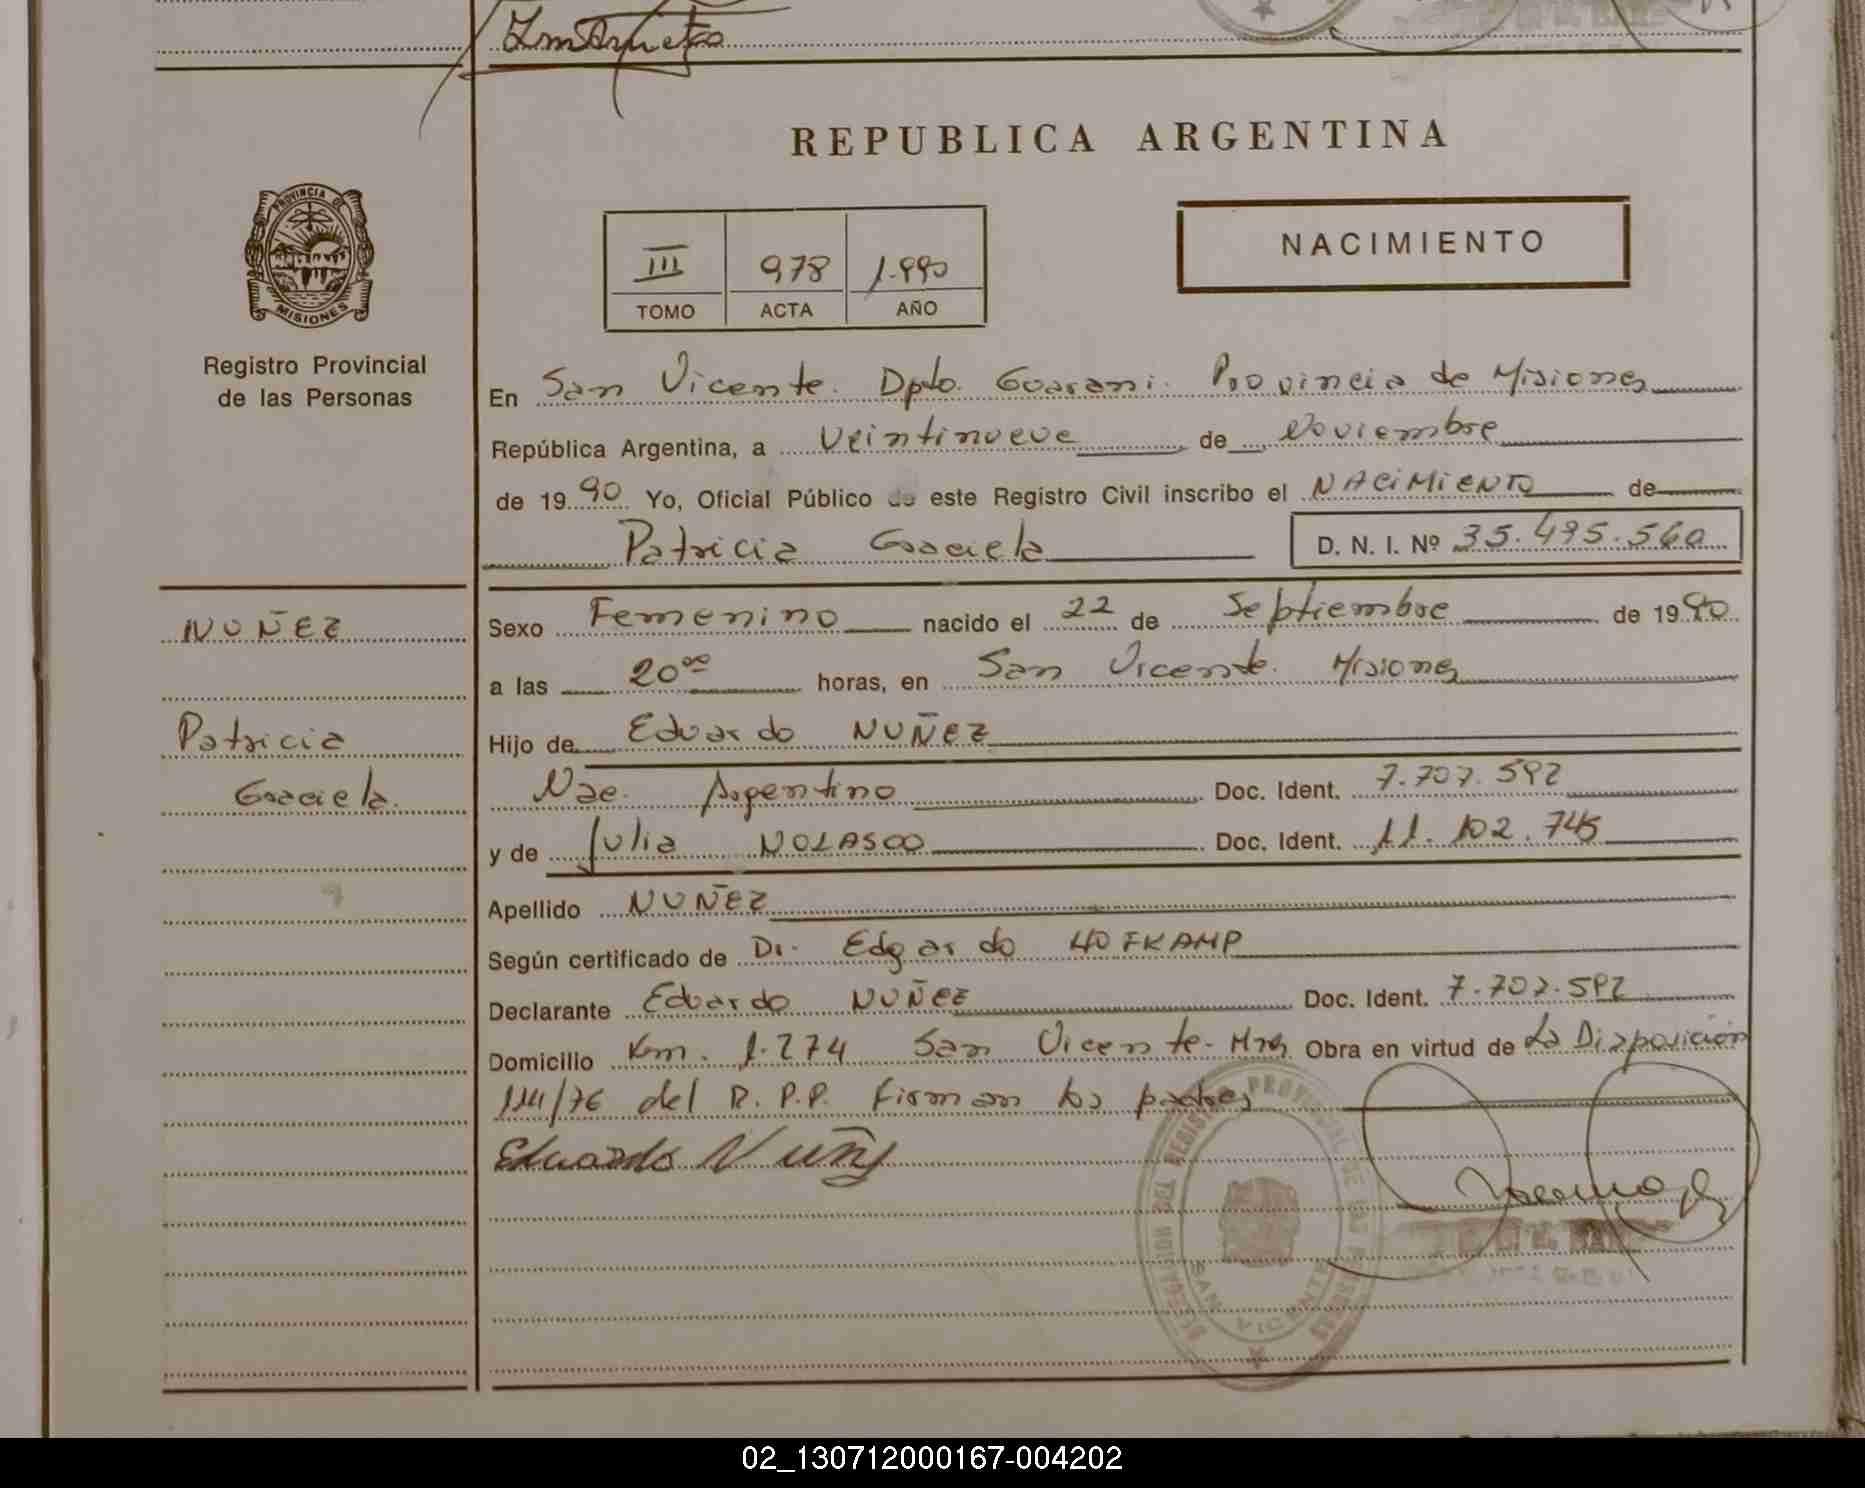 REPUBLICA ARGENTINA
PROVINCIA DE
MISIONES
Registro Provincial
de las Personas
III 978 1.990
TOMO ACTA AÑO
NACIMIENTO
En San Vicente. Dpto. Guarani. Provincia de Misiones
República Argentina, a Veintinueve de Noviembre
de 1990 Yo, Oficial Público de este Registro Civil inscribo el NACIMIENTO de
Patricia Graciela D. N. I. Nº 35.495.560
NUÑEZ
Patricia
Graciela.
Sexo Femenino nacido el 22 de Septiembre de 1990
a las 20ºº horas, en San Vicente. Misiones
Hijo de Eduardo NUÑEZ
Nac. Argentino Doc. Ident. 7.707.592
y de Julia NOLASCO Doc. Ident. 11.102.745
Apellido NUÑEZ
Según certificado de Dr. Edgardo HOFKAMP
Declarante Eduardo NUÑEZ Doc. Ident. 7.707.592
Domicilio Km. 1.274 San Vicente-Mnes Obra en virtud de La Disposición
114/76 del R.P.P. Firman los padres
Eduardo Nuñez
REGISTRO PROVINCIAL DE LAS PERSONAS
SAN VICENTE
02_130712000167-004202